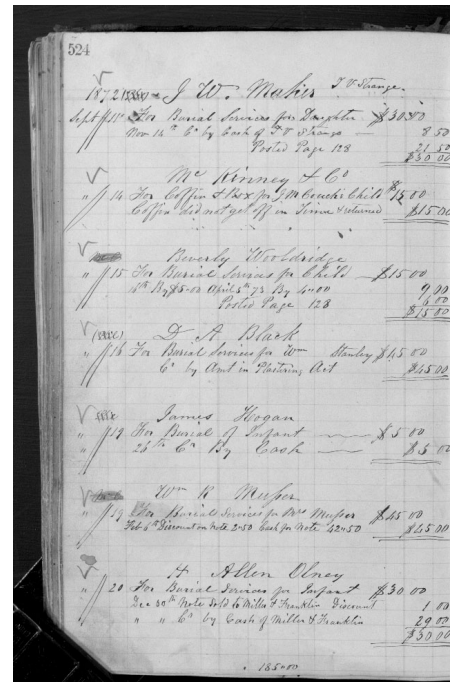 524
1872 J W. Maker T V Strange.
Sept 11 For Burial Services for Daughter $30.00
Nov 14th Cr by Cash of T V Strange 8 50
Posted Page 128 21 50
$30 00
Mc Kinney & Co
" 14 For Coffin & Box for J M Child $15 00
Coffin did not get off in Time & returned $15 00
Beverly Wooldridge
" 15 For Burial Services for Child $15 00
By $5.00 April 5th 73 By 4.00 9 00
Posted Page 128 6 00
$15 00
D A Black
" 16 For Burial Services for Wm Stanley $45 00
Cr by Amt in Plastering Act $45 00
James Hogan
" 19 For Burial of Infant $5 00
" 26th Cr By Cash $5 00
Wm R Musser
" 19 For Burial Services for Mrs Musser $45 00
Feb 6th Discount on Note 2.50 Cash for Note 42.50 $45 00
H Allen Olney
" 20 For Burial Services for Infant $30 00
Dec 30th Note Sold to Miller & Franklin Discount 1 00
" " Cr by Cash of Miller & Franklin 29 00
$30 00
185.00